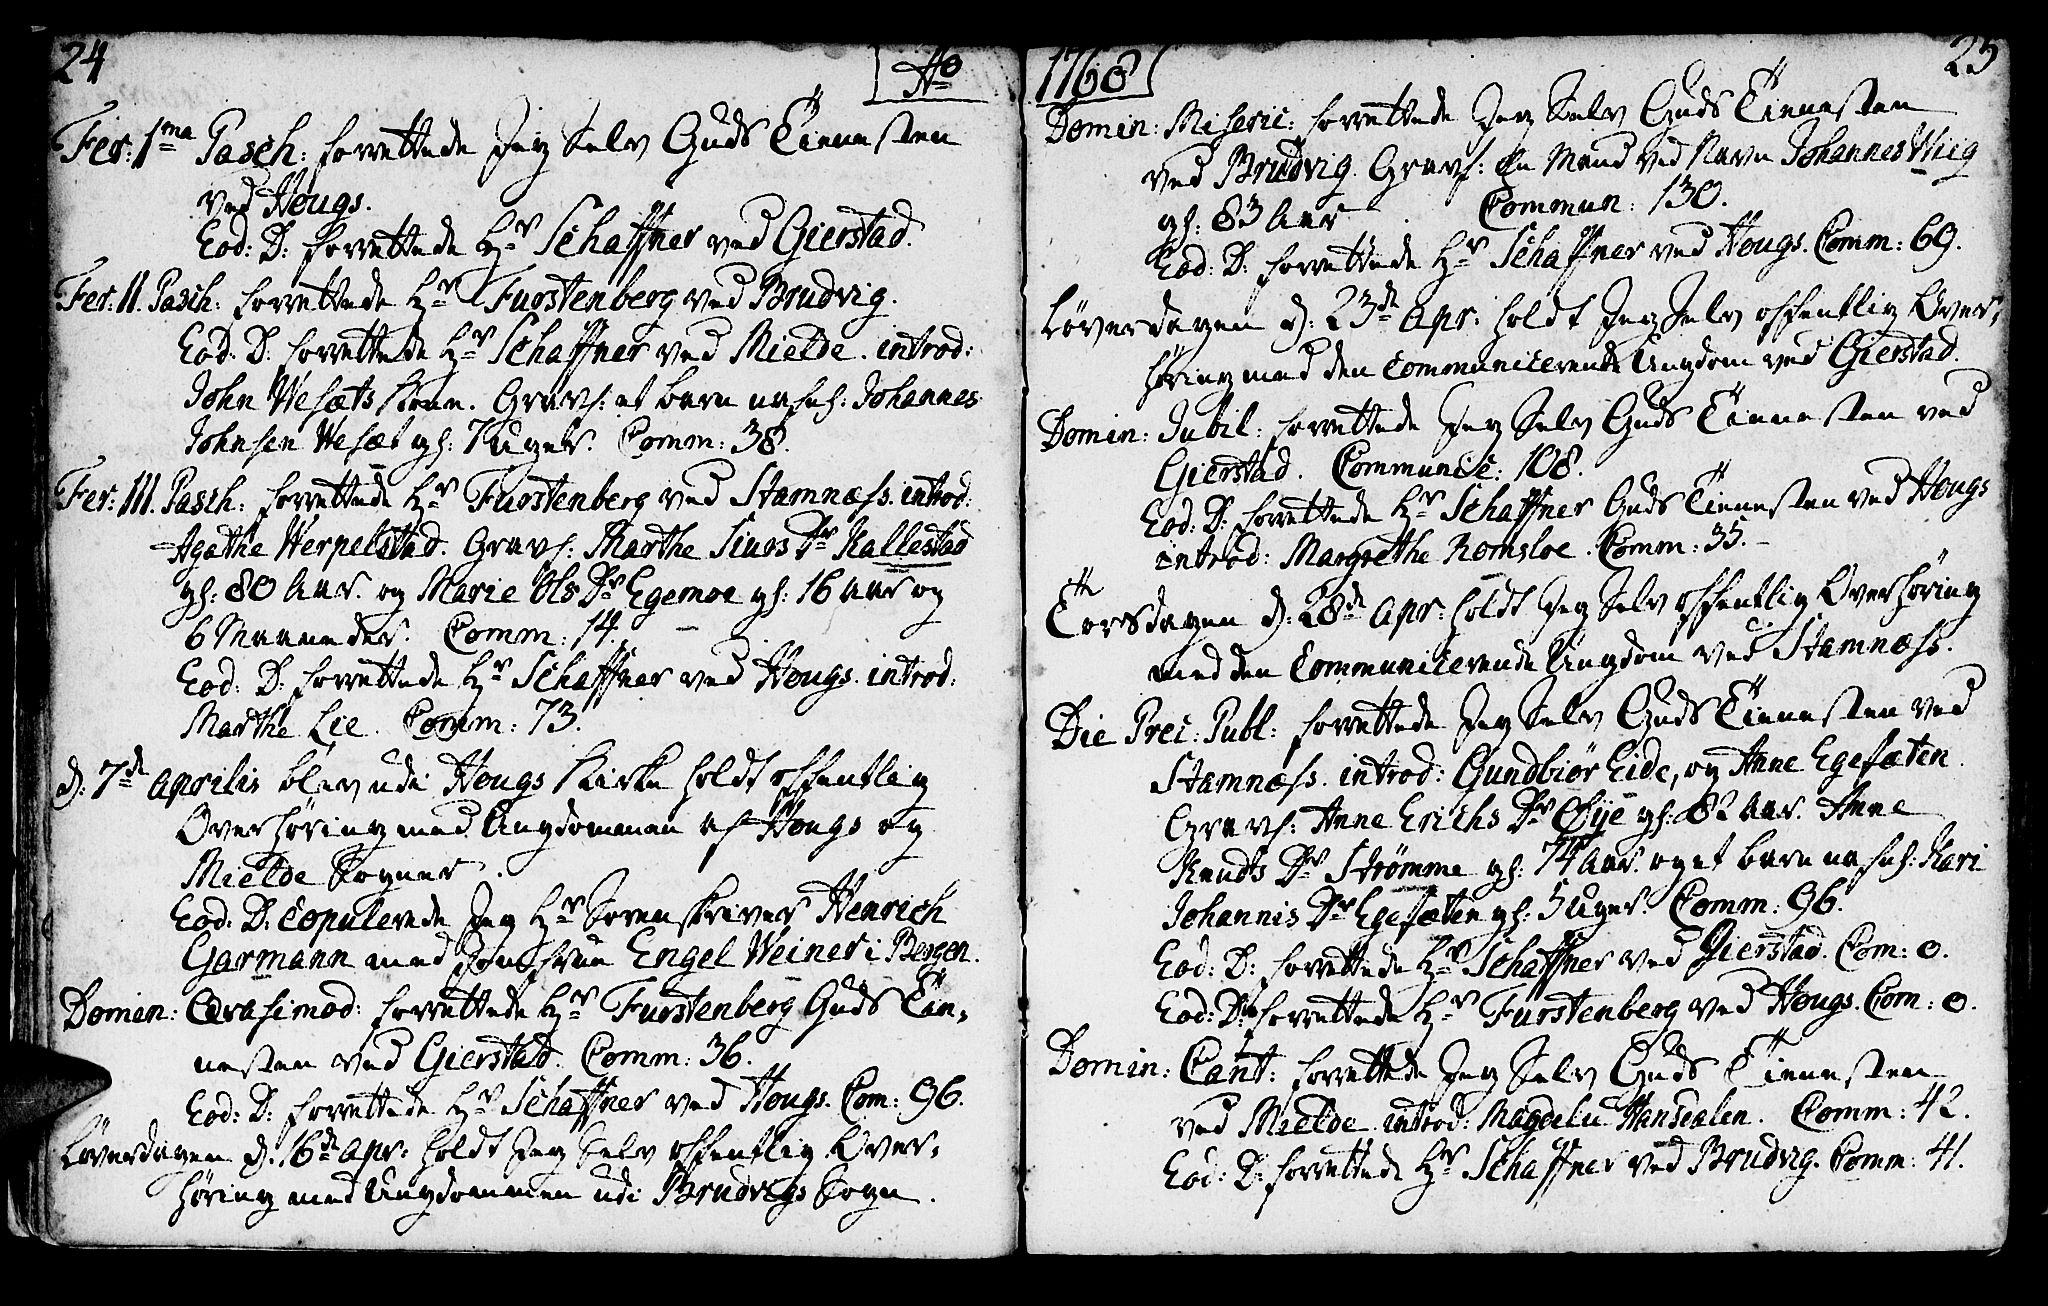 24
Ao
Fer: 1me Pasch: forrettede Jeg Selv Guds Tienesten
ved Hougs.
Eod: D: forrettede Hr Schaffner ved Gierstad.
Fer: II. Pasch: forrettede Hr Furstenberg ved Brudvig.
Eod: D: forrettede Hr Schaffner ved Mielde. introd:
John Wesæts Kone. Gravf: et barn nafnl: Johannes
Johnsen Wesæt gl: 7 Uger. Comm: 38.
Fer: III. Pasch: forrettede Hr Furstenberg ved Stamnæss. introd:
Agathe Werpelstad. Gravf: Marthe Siurs Dr Kallestad
gl: 80 Aar. og Marie Ols Dr Egemoe gl: 16 aar og
6 Maaneder. Comm: 14.
Eod: D: forrettede Hr Schaffner ved Hougs. introd:
Marthe Lie. Comm: 73.
d: 7de Aprilis blev udi Hougs Kirke holdt offentlig
Overhøring med Ungdommen af Hougs og
Mielde Sogner.
Eod: D: Copulerede Jeg Hr Sorenskriver Henrich
Garmann med Jomfrue Engel Weiner i Bergen.
Domin: Qvasimod: forrettede Hr Furstenberg Guds Tie-
nesten ved Gierstad. Comm: 36.
Eod: D: forrettede Hr Schaffner ved Hougs. Com: 96.
Løverdagen d. 16de Apr: holdt Jeg Selv offentlig Over-
høring med Ungdommen udi Brudvigs Sogn.
1768
25
Domin: Miseric: forrettede Jeg Selv Guds Tienesten
ved Brudvig. Gravf: En Mand ved Navn Johannes Wiig
gl: 83 Aar. Commun: 130.
Eod: D: forrettede Hr Schaffner ved Hougs. Comm: 69.
Løverdagen d: 23de Apr: holdt Jeg Selv offentlig Over-
høring med den Communicerende Ungdom ved Gierstad.
Domin: Jubil: forrettede Jeg Selv Guds Tienesten ved
Gierstad. Communic: 108.
Eod: D: forrettede Hr Schaffner Guds Tienesten ved Hougs
introd: Margrethe Romsloe. Comm: 35.
Torsdagen d: 28de Apr: holdt Jeg Selv offentlig Overhøring
med den Communicerende Ungdom ved Stamnæss.
Die Prec: Publ: forrettede Jeg Selv Guds Tienesten ved
Stamnæss. introd: Gundbiør Eide, og Anne Egesæten.
Gravf: Anne Erichs Dr Øye gl: 82 Aar. Anne
Knudts Dr Strømme gl: 74 Aar. og et barn nafnl: Kari
Johannis Dr Egesæten gl: 5 Uger. Comm: 96.
Eod: D: forrettede Hr Schaffner ved Gierstad. Com: 0.
Eod: D: forrettede Hr Furstenberg ved Hougs. Com: 0.
Domin: Cant: forrettede Jeg Selv Guds Tienesten
ved Mielde introd: Magdeli Hansdalen. Comm: 42.
Eod: D: forrettede Hr Schaffner ved Brudvig. Comm: 41.